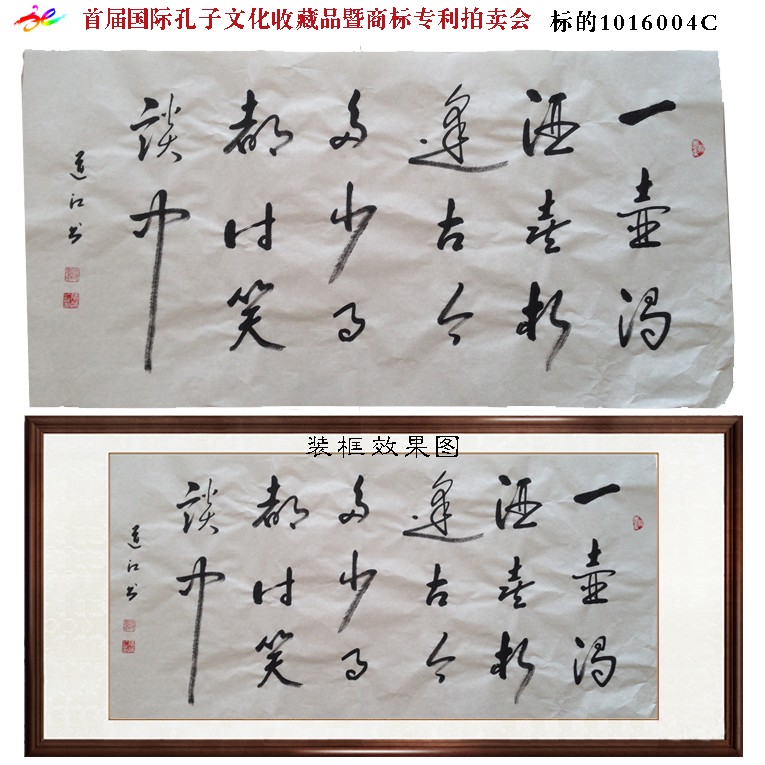 首届国际孔子文化收藏品暨商标专利拍卖会 标的1016004C
一壺濁
酒喜相
逢古今
多少事
都付笑
談中
江书
装框效果图
一壺濁
酒喜相
逢古今
多少事
都付笑
談中
江书